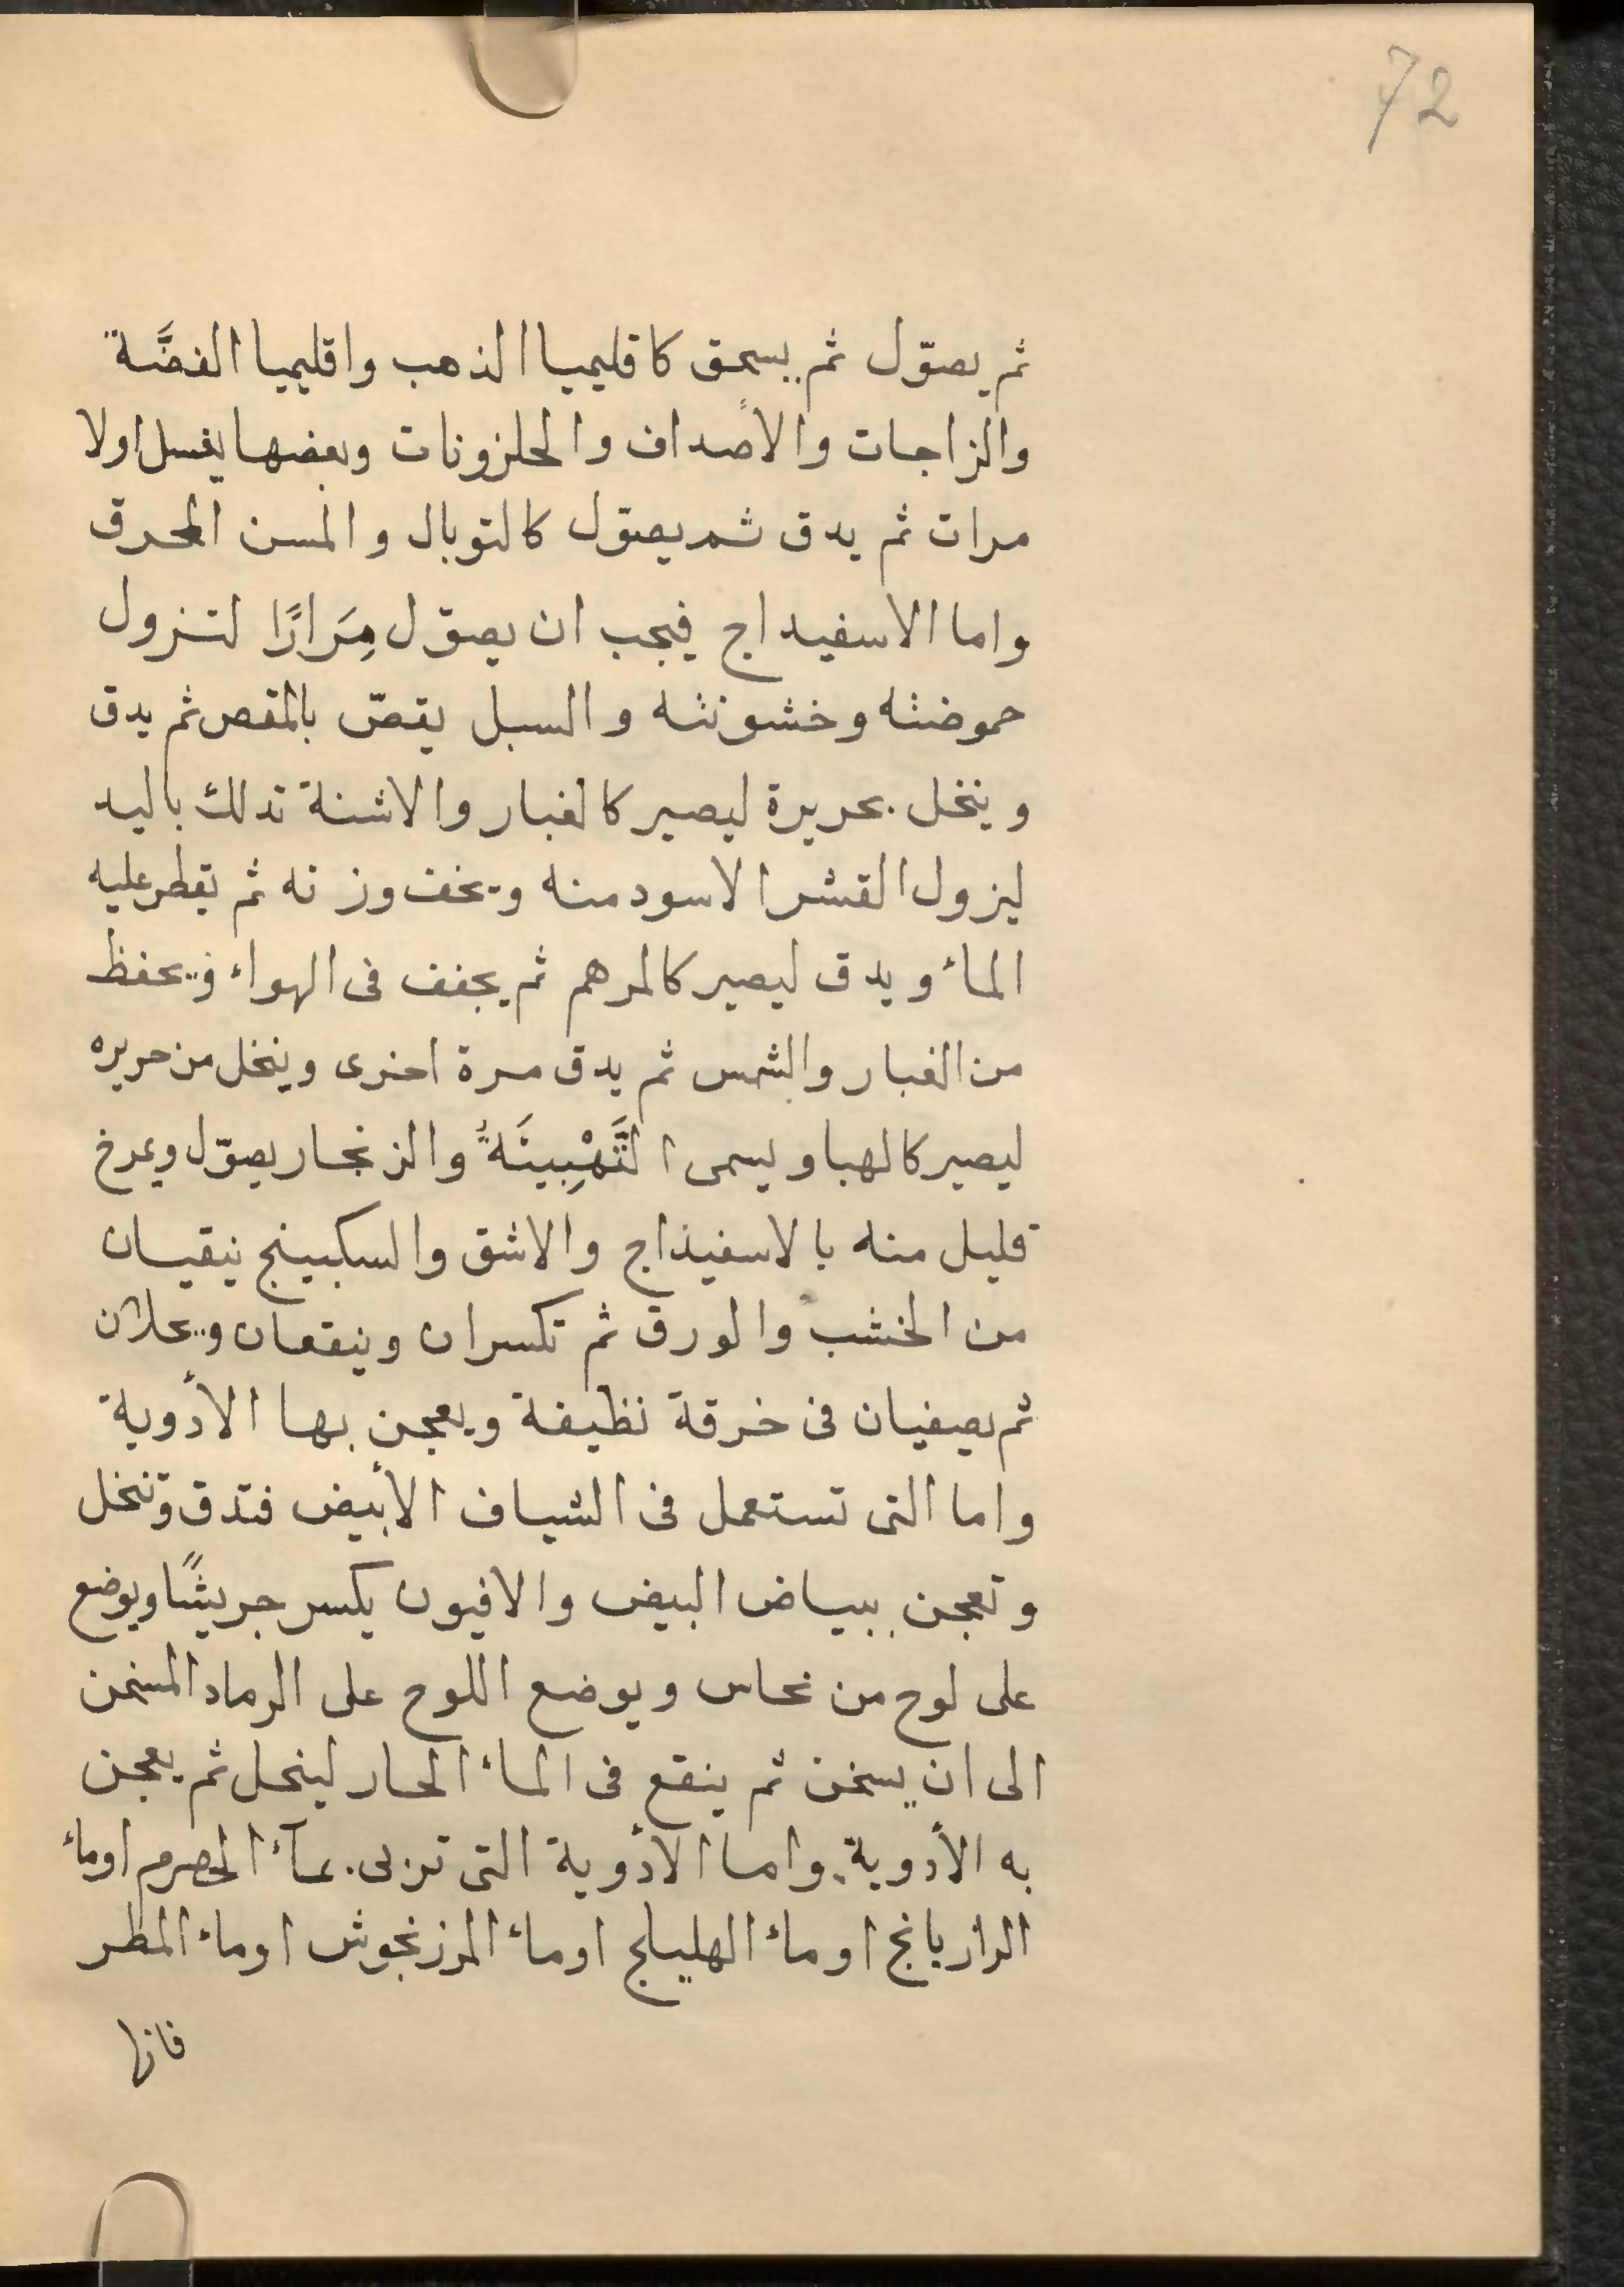 72
ثم يصوّل ثم يسحق كاقليميا الذهب واقليميا الفضَّة
والزاجات والأصداف والحلزونات وبعضها يغسل اولا
مرات ثم يدق ثم يصوّل كالتوبال والمسن المحرق
واما الاسفيداج فيجب ان يصوّل مِرَارًا لتزول
حموضته وخشونته والسبل يقصّ بالمقص ثم يدق
وينخل بحريرة ليصير كالغبار والاشنة تدلك باليد
ليزول القشر الاسود منه ويخف وزنه ثم يقطر عليه
الماء ويدق ليصير كالمرهم ثم يجفف فى الهواء ويحفظ
من الغبار والشمس ثم يدق مرة اخرى وينخل من حريره
ليصير كالهبا ويسمى التَّهْبِيَةُ والزنجار يصوّل ويمرخ
قليل منه بالاسفيذاج والاشق والسكبينج ينقيان
من الخشب والورق ثم تكسران وينقعان ويحلان
ثم يصفيان فى خرقة نظيفة ويعجن بها الأدوية
واما التى تستعمل فى الشياف الأبيض فتدق وتنخل
وتعجن ببياض البيض والافيون يكسر جريشًا ويوضع
على لوح من نحاس ويوضع اللوح على الرماد المسخن
الى ان يسخن ثم ينقع فى الماء الحار لينحل ثم يعجن
به الأدوية واما الأدوية التى تربى بمآء الحصرم اوماء
الرازيانج اوماء الهليلج اوماء المرزنجوش اوماء المطر
فانها